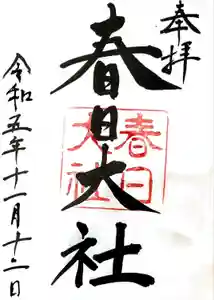 奉拝
春日大社
春日
大社
令和五年十一月十二日